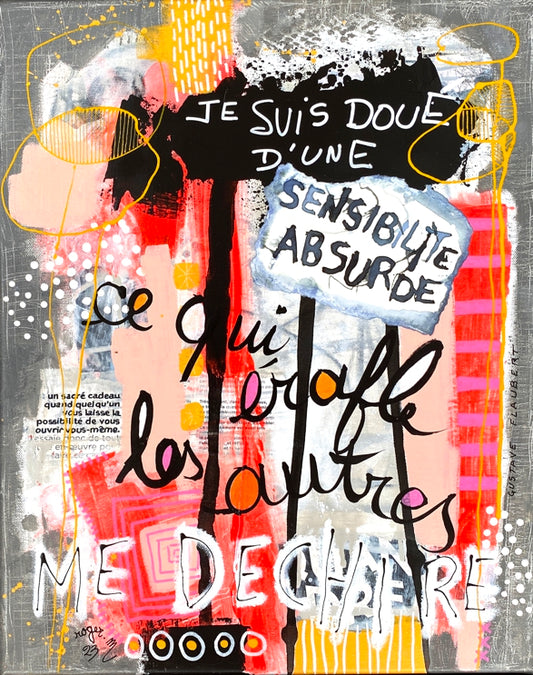 JE SUIS DOUE
D'UNE
SENSIBILITE
ABSURDE
ce qui
érafle
les autres
ME DECHIRE
GUSTAVE FLAUBERT
un sacré cadeau
quand quelqu'un
vous laisse la
possibilité de vous
ouvrir vous-même.
roger.
23